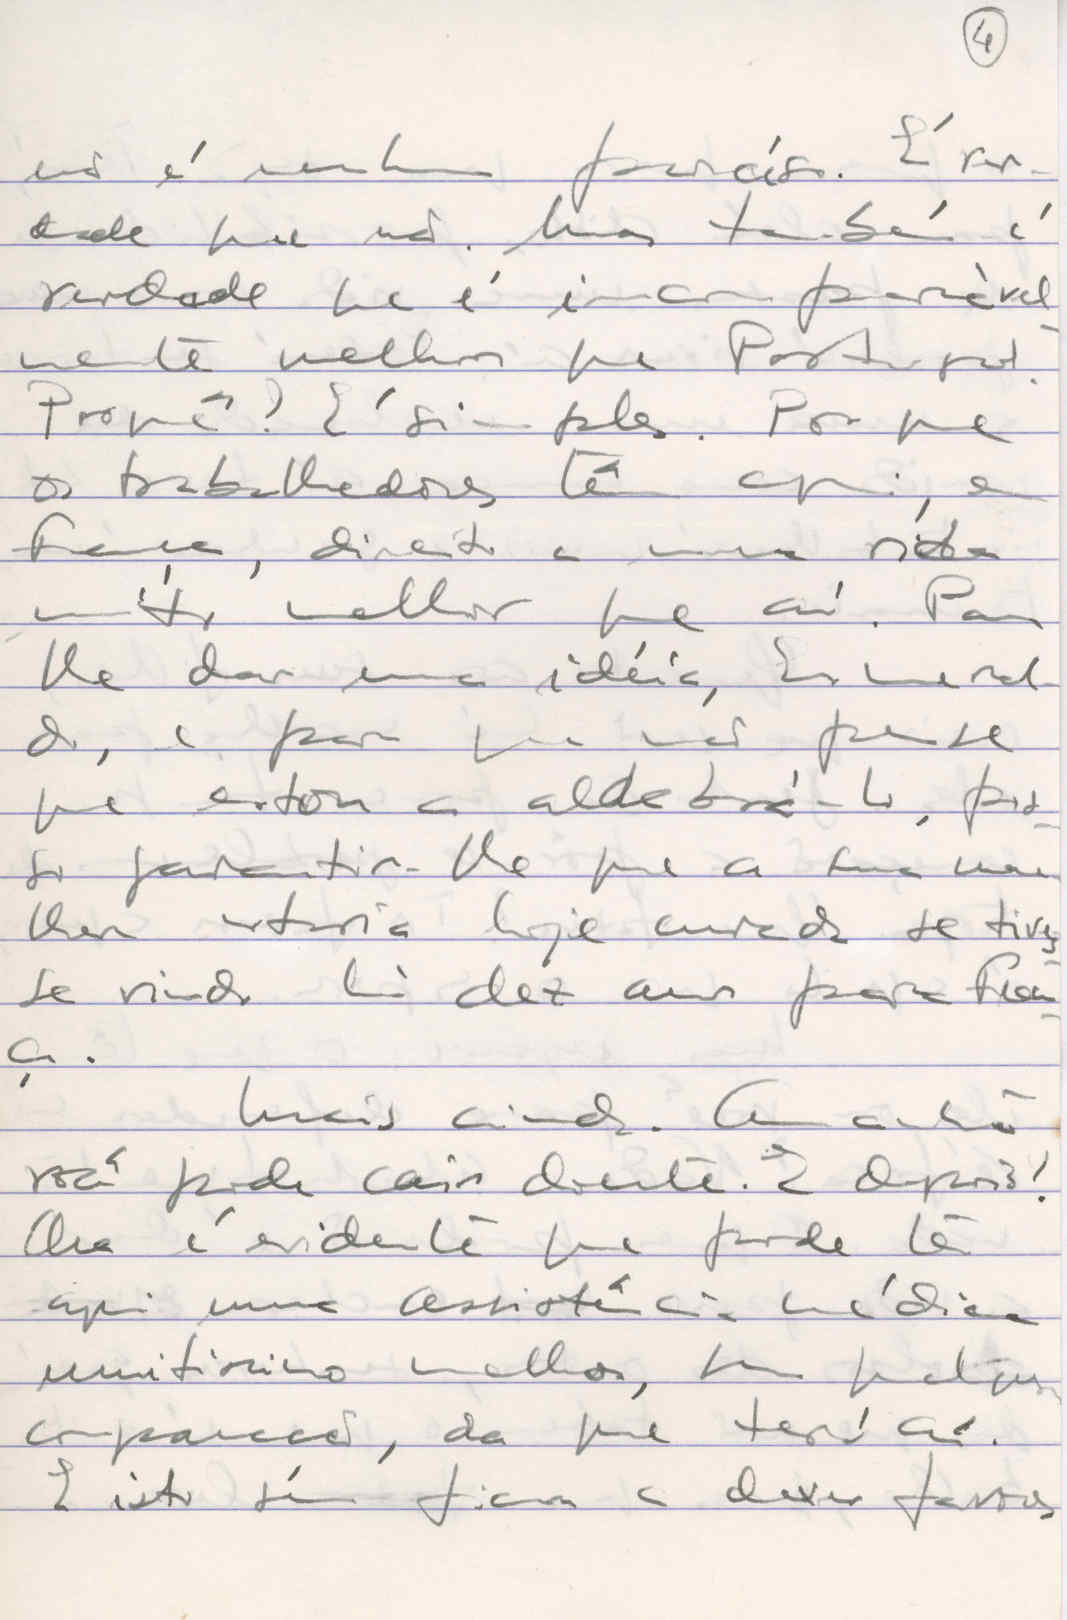 4
não é nenhum paraíso. É ver-
dade que não. Mas também é
verdade que é incomparàvel
mente melhor que Portugal.
Proquê? É simples. Porque
os trabalhadores têm aqui, em
França, direito a uma vida
muito melhor que aí. Para
lhe dar uma idéia, Esmeral-
do, e para que não pense
que estou a aldabrá-lo, pos-
so garantir-lhe que a sua mu
lher estaria hoje curada se tives
se vindo há dez anos para Fran-
ça.
Mais ainda. Amanhã
você pode cair doente. E depois?
Ora é evidente que pode ter
aqui uma assistência médica
muitíssimo melhor, sem qualquer
comparação, da que terá aí.
E isto sem ficar a dever favores